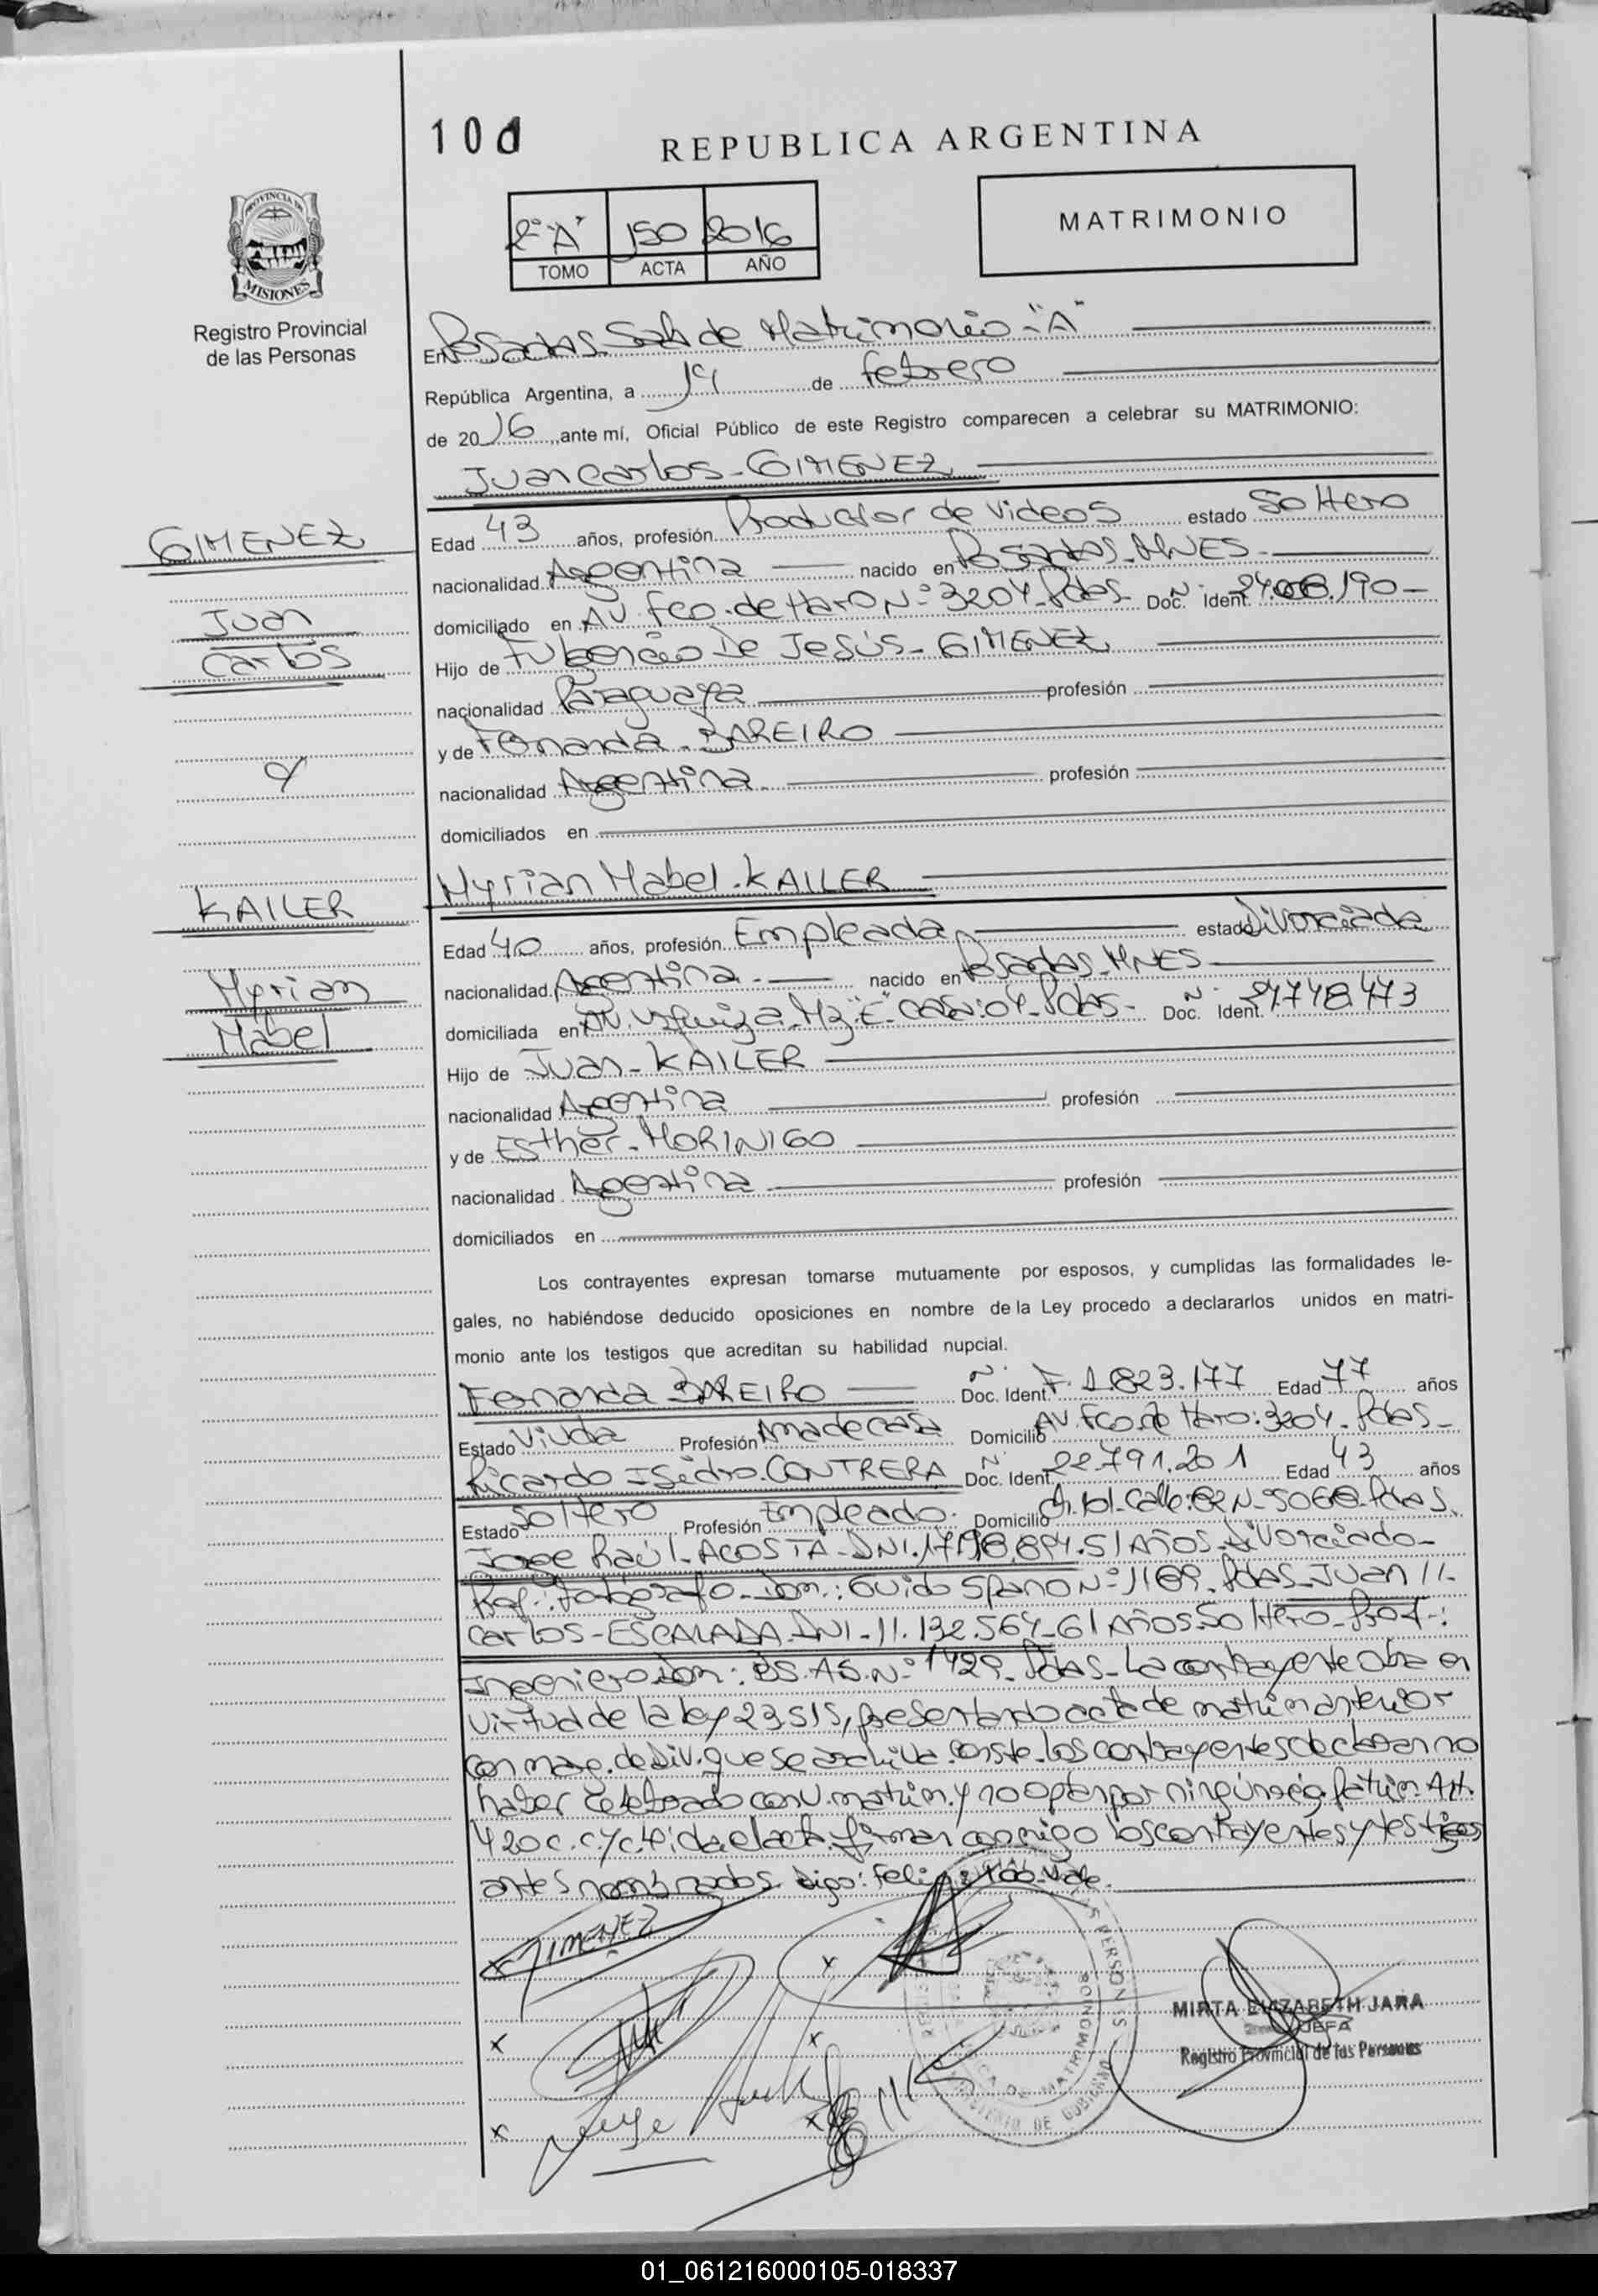 100
REPUBLICA ARGENTINA
PROVINCIA DE
MISIONES
Registro Provincial
de las Personas
2º "A" 150 2016
TOMO ACTA AÑO
MATRIMONIO
En Posadas Sala de Matrimonio "A"
República Argentina, a 19 de febrero
de 2016, ante mí, Oficial Público de este Registro comparecen a celebrar su MATRIMONIO:
Juan Carlos - GIMENEZ
GIMENEZ
Juan
Carlos
y
KAILER
Myrian
Mabel
Edad 43 años, profesión Productor de Videos estado Soltero
nacionalidad Argentina nacido en Posadas - MNES -
domiciliado en AV. Fco. de Haro Nº 3204 - Pdas - Doc. Ident. Nº
Hijo de Fulgencio De Jesús - GIMENEZ
nacionalidad Paraguaya profesión
y de Fernanda - BAREIRO
nacionalidad Argentina profesión
domiciliados en
Myrian Mabel - KAILER
Edad 40 años, profesión Empleada estado Divorciada
nacionalidad Argentina - nacido en Posadas - MNES
domiciliada en AV. Urquiza - Mz "E" casa: 04 - Pdas - Doc. Ident. Nº 24748.473
Hijo de Juan - KAILER
nacionalidad Argentina profesión
y de Esther - MORINIGO
nacionalidad Argentina profesión
domiciliados en
Los contrayentes expresan tomarse mutuamente por esposos, y cumplidas las formalidades le-
gales, no habiéndose deducido oposiciones en nombre de la Ley procedo a declararlos unidos en matri-
monio ante los testigos que acreditan su habilidad nupcial.
Fernanda BAREIRO Doc. Ident. Nº F. 1.823.177 Edad 77 años
Estado Viuda Profesión Ama de casa Domicilio AV. Fco. de Haro: 3204 - Pdas -
Ricardo Isidro - CONTRERA Doc. Ident. Nº 22.791.201 Edad 43 años
Estado Soltero Profesión Empleado. Domicilio Ch. Calle: 82 Nº 5068 - Pdas.
Jorge Raúl - ACOSTA - DNI. 51 Años - Divorciado -
Prof.: Fotógrafo - Dom.: Guido Spano Nº 1169 - Pdas - Juan //-
Carlos - ESCALADA - DNI - 11.132.564 - 61 Años - Soltero - Prof.:
Ingeniero Dom: BS. AS. Nº 1429 - Pdas - La contrayente obra en
virtud de la ley 23.515, presentando acta de matrim anterior
con marg. de Div. que se archiva. Conste - Los contrayentes declaran no
haber celebrado conv. matrim. y no optan por ningún reg. Patrim. Art.
420 c. c y c. Leída el acta firman conmigo los contrayentes y testigos
antes nombrados. Digo: Vale.
GIMENEZ
MIRTA ELIZABETH JARA
JEFA
Registro Provincial de las Personas
01_061216000105-018337